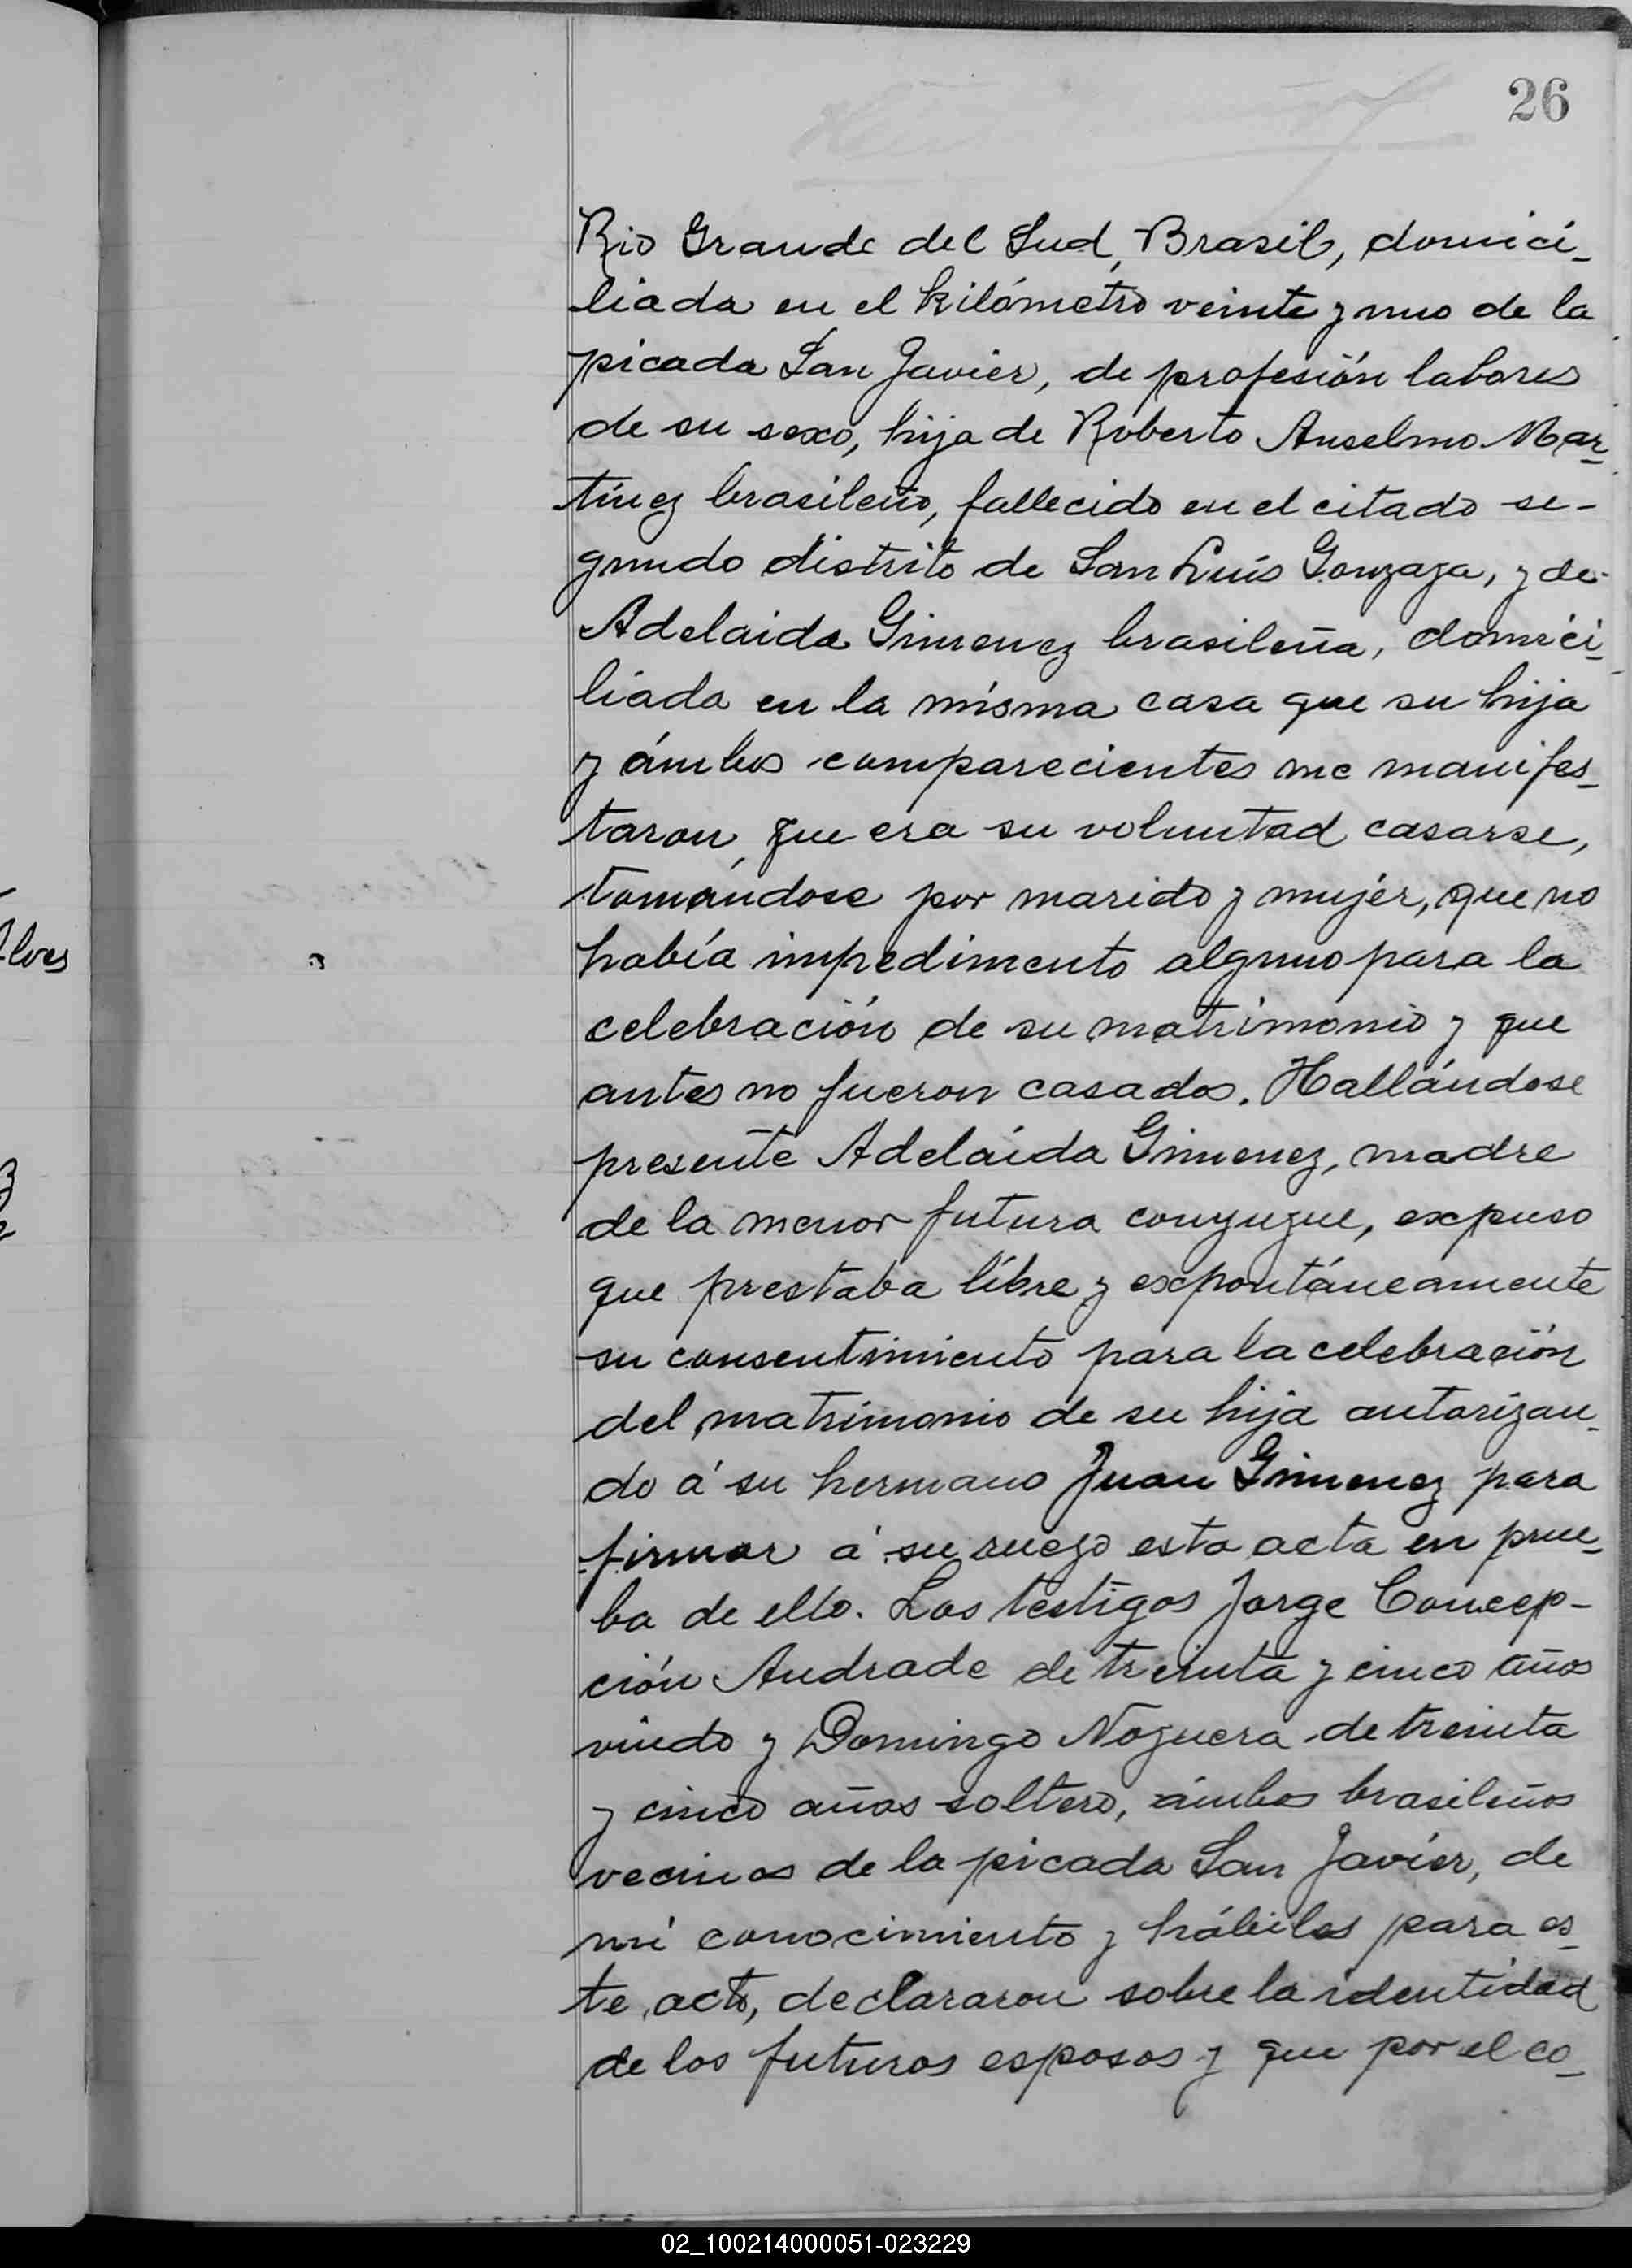 26
Rio Grande del Sud, Brasil, domici-
liada en el kilómetro veinte y uno de la
picada San Javier, de profesión labores
de su sexo, hija de Roberto Anselmo Mar-
tinez brasileño, fallecido en el citado se-
gundo distrito de San Luís Gonzaga, y de
Adelaida Gimenez brasileña, domici-
liada en la misma casa que su hija
y ámbos comparecientes me manifes-
taron, que era su voluntad casarse,
tomándose por marido y mujer, que no
había impedimento alguno para la
lves
celebración de su matrimonio y que
antes no fueron casados. Hallándose
presente Adelaida Gimenez, madre
de la menor futura conyugue, expuso
que prestaba líbre y expontáneamente
su consentimiento para la celebración
del matrimonio de su hija autorizan-
do á su hermano Juan Gimenez para
firmar á su ruego esta acta en prue-
ba de ello. Los testigos Jorge Concep-
ción Andrade de treinta y cinco años
viudo y Domingo Noguera de treinta
y cinco años soltero, ámbos brasileños
vecinos de la picada San Javier, de
mi conocimiento y hábiles para es-
te acto, declararon sobre la identidad
de los futuros esposos y que por el co-
02_100214000051-023229